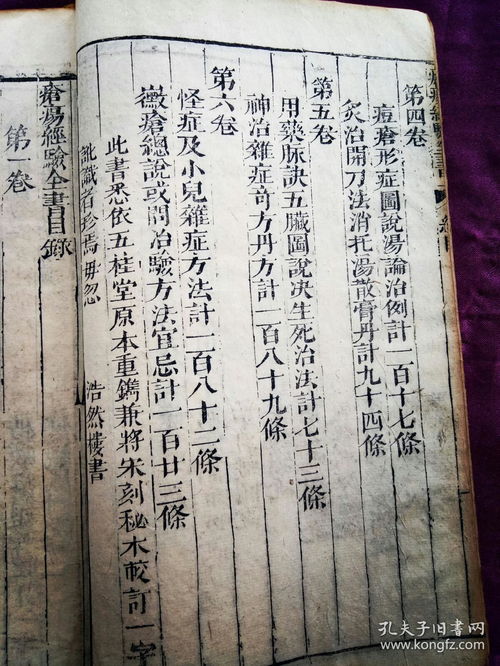 第四卷
痘瘡形症圖說湯論治例計一百十七條
炙治開刀法消托湯散膏丹計九十四條
第五卷
用藥脉訣五臟圖說决生死治法計七十三條
神治雜症奇方丹方計一百八十九條
第六卷
怪症及小兒雜症方法計一百八十二條
黴瘡總說或問治驗方法宜忌計一百廿三條
此書悉依五桂堂原本重鐫兼將宋刻秘本較訂一字
訛識者珍焉毋忽
浩然樓書
瘡瘍經驗全書目錄
第一卷
孔夫子旧书网
www.kongfz.com